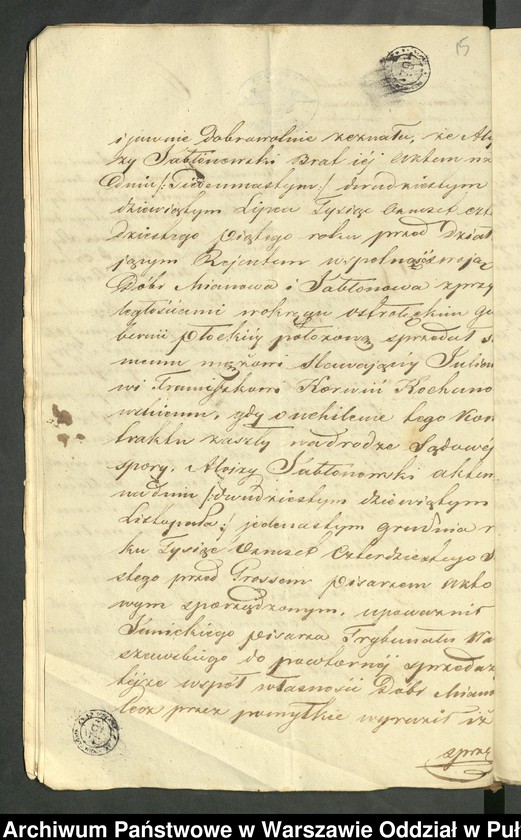 15
i jawnie dobrowolnie zeznała, że Aloj
zy Jabłonowski Brat jéj Aktem na
Dniu /: Siedemnastym :/ dwudziestym
dziewiątym Lipca Tysiąc Ośmset czte
dziestego piątego roku przed Dział
jącym Rejentem wspólność swoją
Dóbr Mianowa i Jabłonowa z przy
ległościami w okręgu Ostrołęckim gu
bernii Płockiéj położoną sprzedał s
memu mężowi stawającéj Julian
wi Franciszkowi Korwin Kochano
wskiemu, gdy o uchylenie tego Kon
traktu zaszły na drodze Sądowéj
spory, Alojzy Jabłonowski aktem
na dniu /: dwudziestym dziewiątym
Listopada :/ jedenastym grudnia r
ku Tysiąc Ośmset Czterdziestego S
stego przed Grossem pisarzem akto
wym sporządzonym, upoważnił
Janickiego pisarza Trybunału Wa
szawskiego do powtórnéj sprzedaż
téjże współ własności Dóbr Mian
lecz przez pomyłkie wyraził iż
sprze
Archiwum Państwowe w Warszawie Oddział w Puł